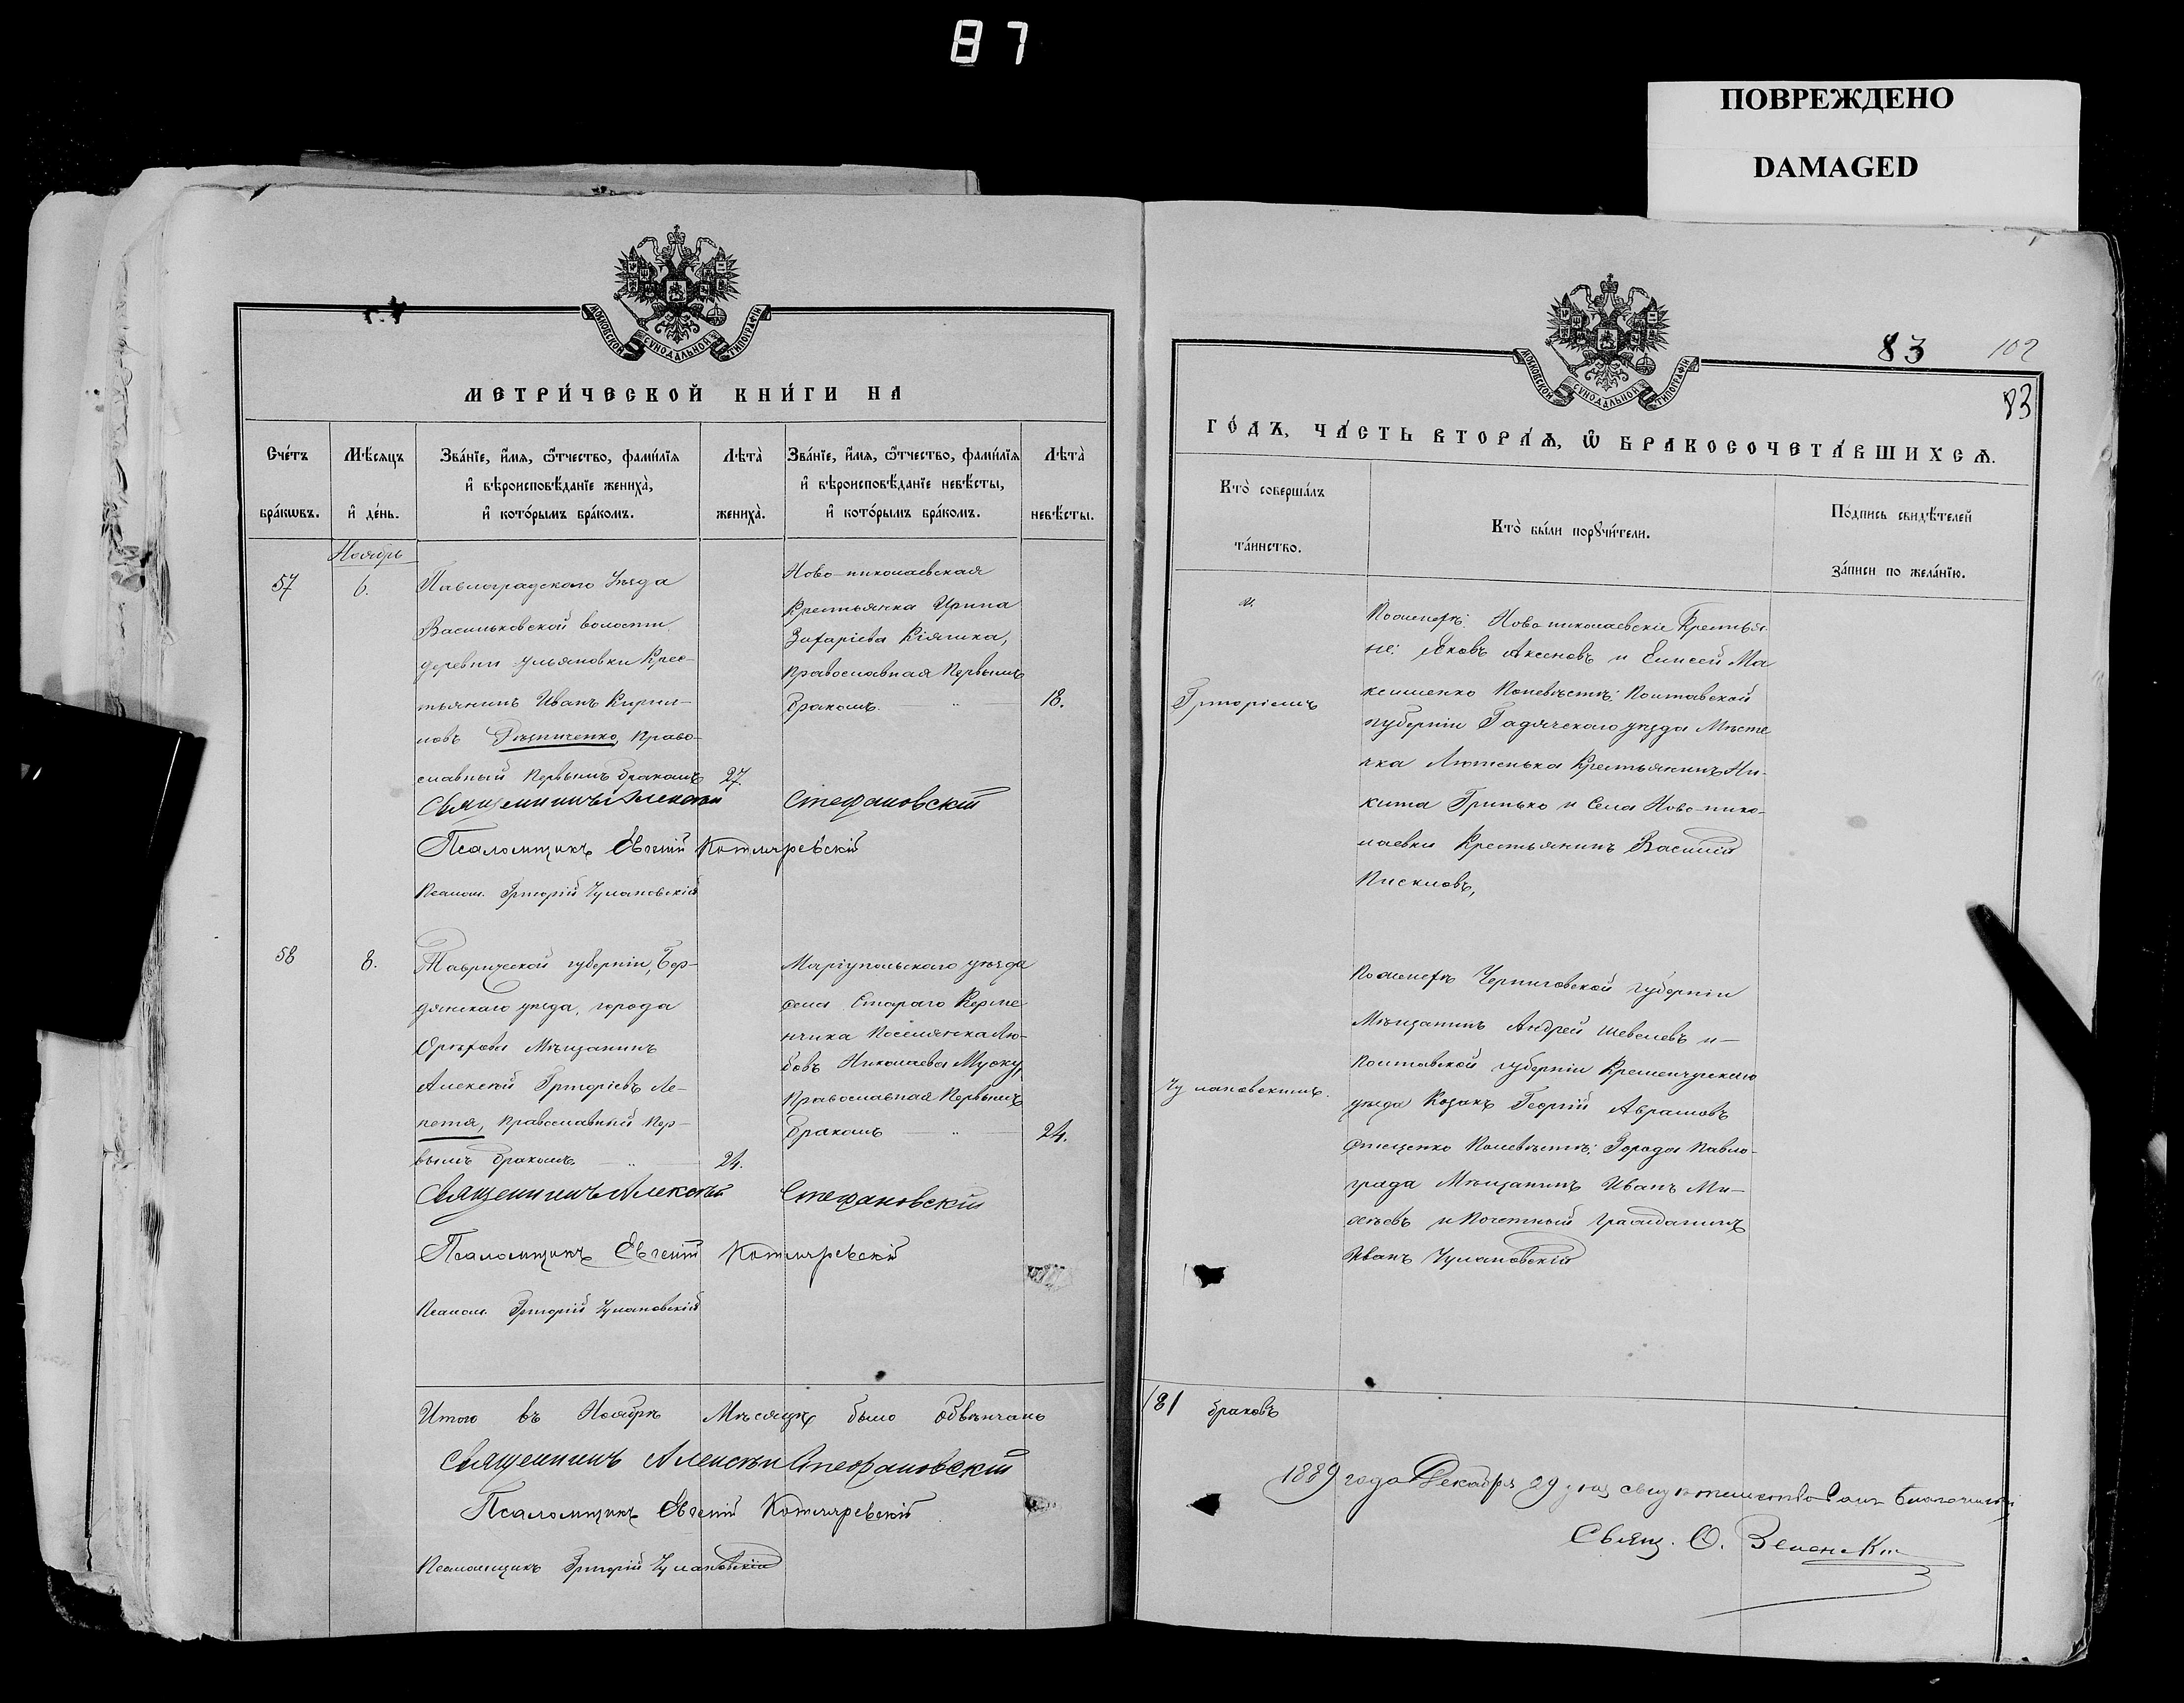 87
ПОВРЕЖДЕНО
DAMAGED
МОСКОВСКОЙ СУНОДАЛЬНОЙ ТИПОГРАФІИ
МЕТРИ́ЧЕСКОЙ КНИ́ГИ НА
Сче́тъ бра́кѡвъ.
Мѣ́сяцъ и҆ де́нь.
Зва́нїе, и҆́мя, ѻ҆́тчество, фами́лїя и҆ вѣроисповѣ́данїе жениха̀, и҆ кото́рымъ бра́комъ.
Лѣта̀ жениха̀.
Зва́нїе, и҆́мя, ѻ҆́тчество, фами́лїя и҆ вѣроисповѣ́данїе невѣ́сты, и҆ кото́рымъ бра́комъ.
Лѣта̀ невѣ́сты.
Ноябрь
57
6.
Павлоградскаго Уѣзда
Васильковской волости
деревни Ульяновки Крес-
тьянинъ Иванъ Кирил-
ловъ Право-
славный Первымъ бракомъ
27.
Ново-николаевская
Крестьянка Ирина
Захаріева Кіяшка,
православная Первымъ
бракомъ.
18.
Священникъ Алексѣй Стефановскій
Псаломщикъ Евгеній Котляревскій
Псалом. Григорій Чулановскій
58
8.
Таврической губерніи, Бер-
дянскаго уѣзда, города
Орѣхова Мѣщанинъ
Алексѣй Григоріевъ Ле-
петя, православный Пер-
вымъ бракомъ
24.
Маріупольскаго уѣзда
села Стараго Керме-
нчика Поселянка Лю-
бовъ Николаева
Православная Первымъ
бракомъ
24.
Священникъ Алексѣй Стефановскій
Псаломщикъ Евгеній Котляревскій
Псалом. Григорій Чулановскій
Итого въ Ноябрѣ Мѣсяцѣ было обвѣнчано
Священникъ Алексѣй Стефановскій
Псаломщикъ Евгеній Котляревскій
Псаломщикъ Григорій Чулановскій
МОСКОВСКОЙ СУНОДАЛЬНОЙ ТИПОГРАФІИ
83
102
83
ГО́ДЪ, ЧА́СТЬ ВТОРА́Ѧ, Ѽ БРАКОСОЧЕТА́ВШИХСѦ.
Кто̀ соверша́лъ та́инство.
Кто̀ бы́ли порꙋчи́тели.
По́дпись свидѣ́телей за́писи по жела́нїю.
и.
Григоріемъ
Чулановскимъ.
По женихѣ: Ново николаевскіе Крестья-
не: Яковъ Аксеновъ и Елисей Ма
ксименко По невѣстѣ: Полтавской
губерніи Гадячскаго уѣзда Мѣсте
чка Лютенька Крестьянинъ Ни-
кита Гринько и Села Ново-нико-
лаевки Крестьянинъ Василій
Пискловъ,
По женихѣ Черниговской губерніи
Мѣщанинъ Андрей Шевелевъ и
Полтавской губерніи Кременчугскаго
уѣзда Козакъ Георгій Абрамовъ
По невѣстѣ: Города Павло-
града Мѣщанинъ Иванъ Ми-
сѣевъ и Почетный гражданинъ
Иванъ Чулановскій
181 браковъ
1889 года Декабря 29 дня свидѣтельствовалъ Благочинный
Свящ. О.